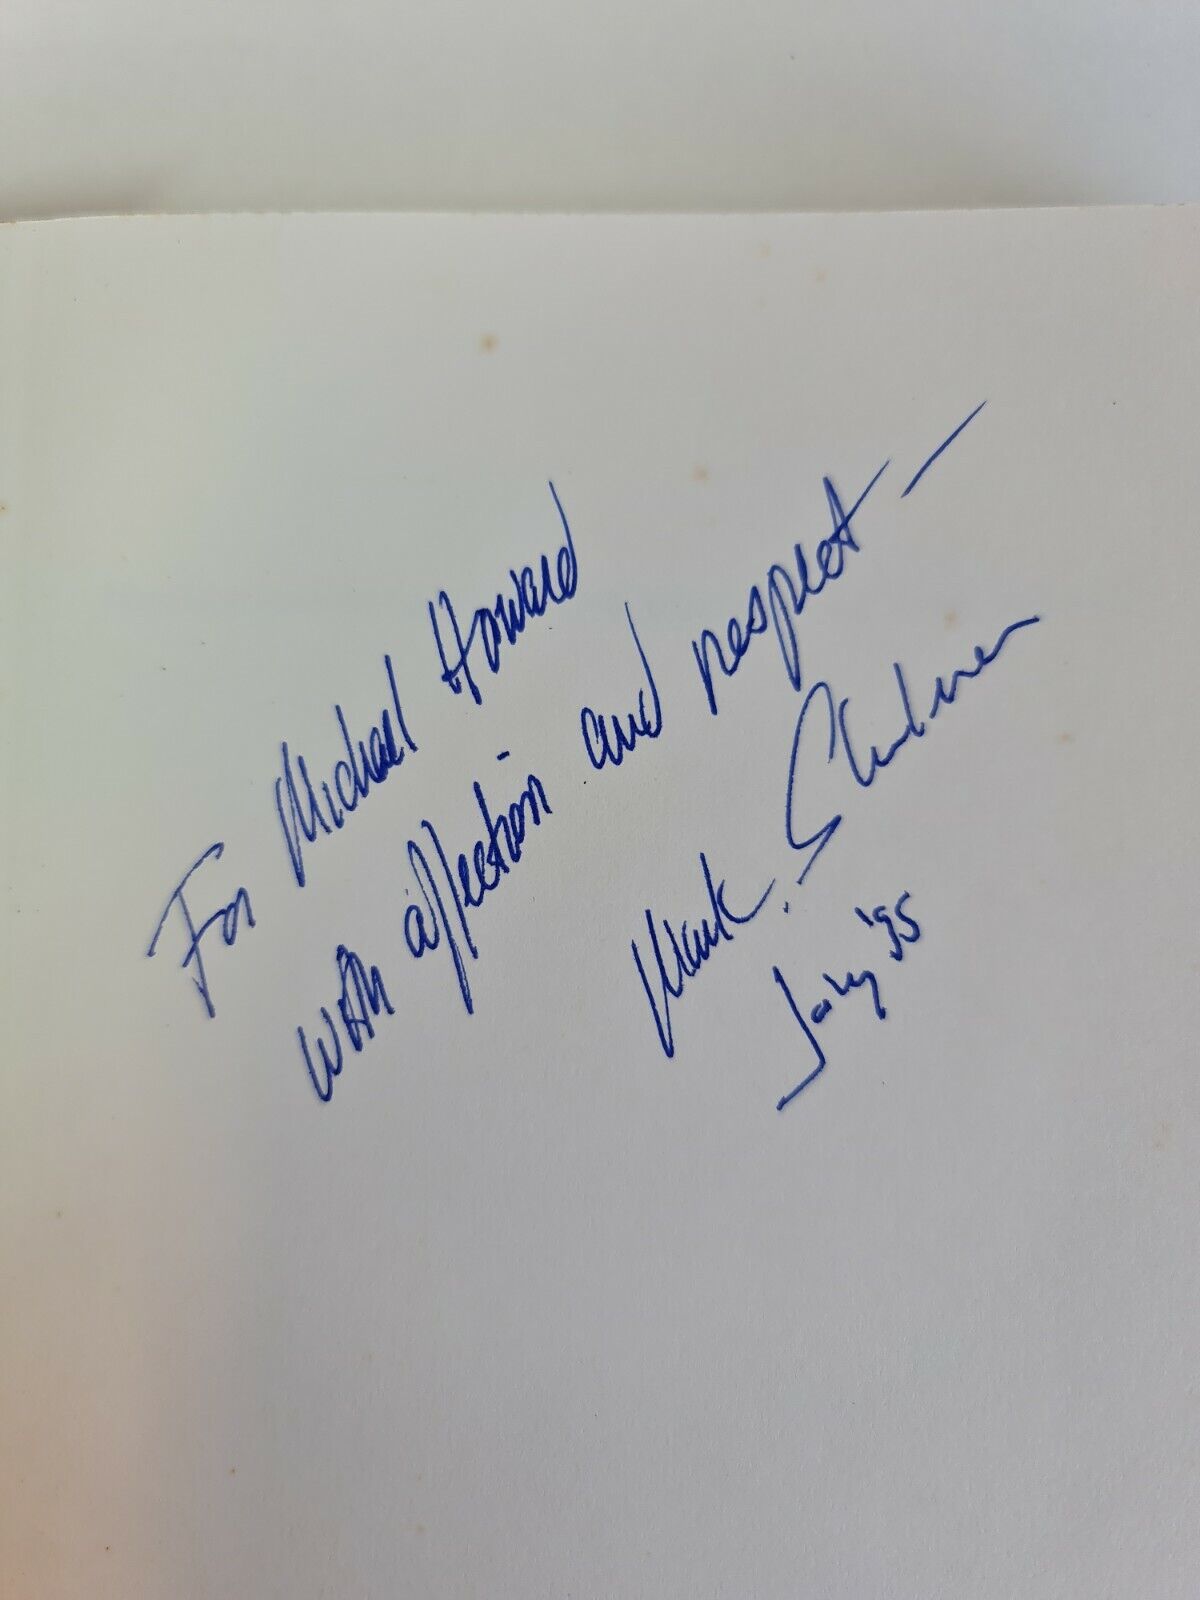 For Michael Howard
with affection and respect —
Mark
'95